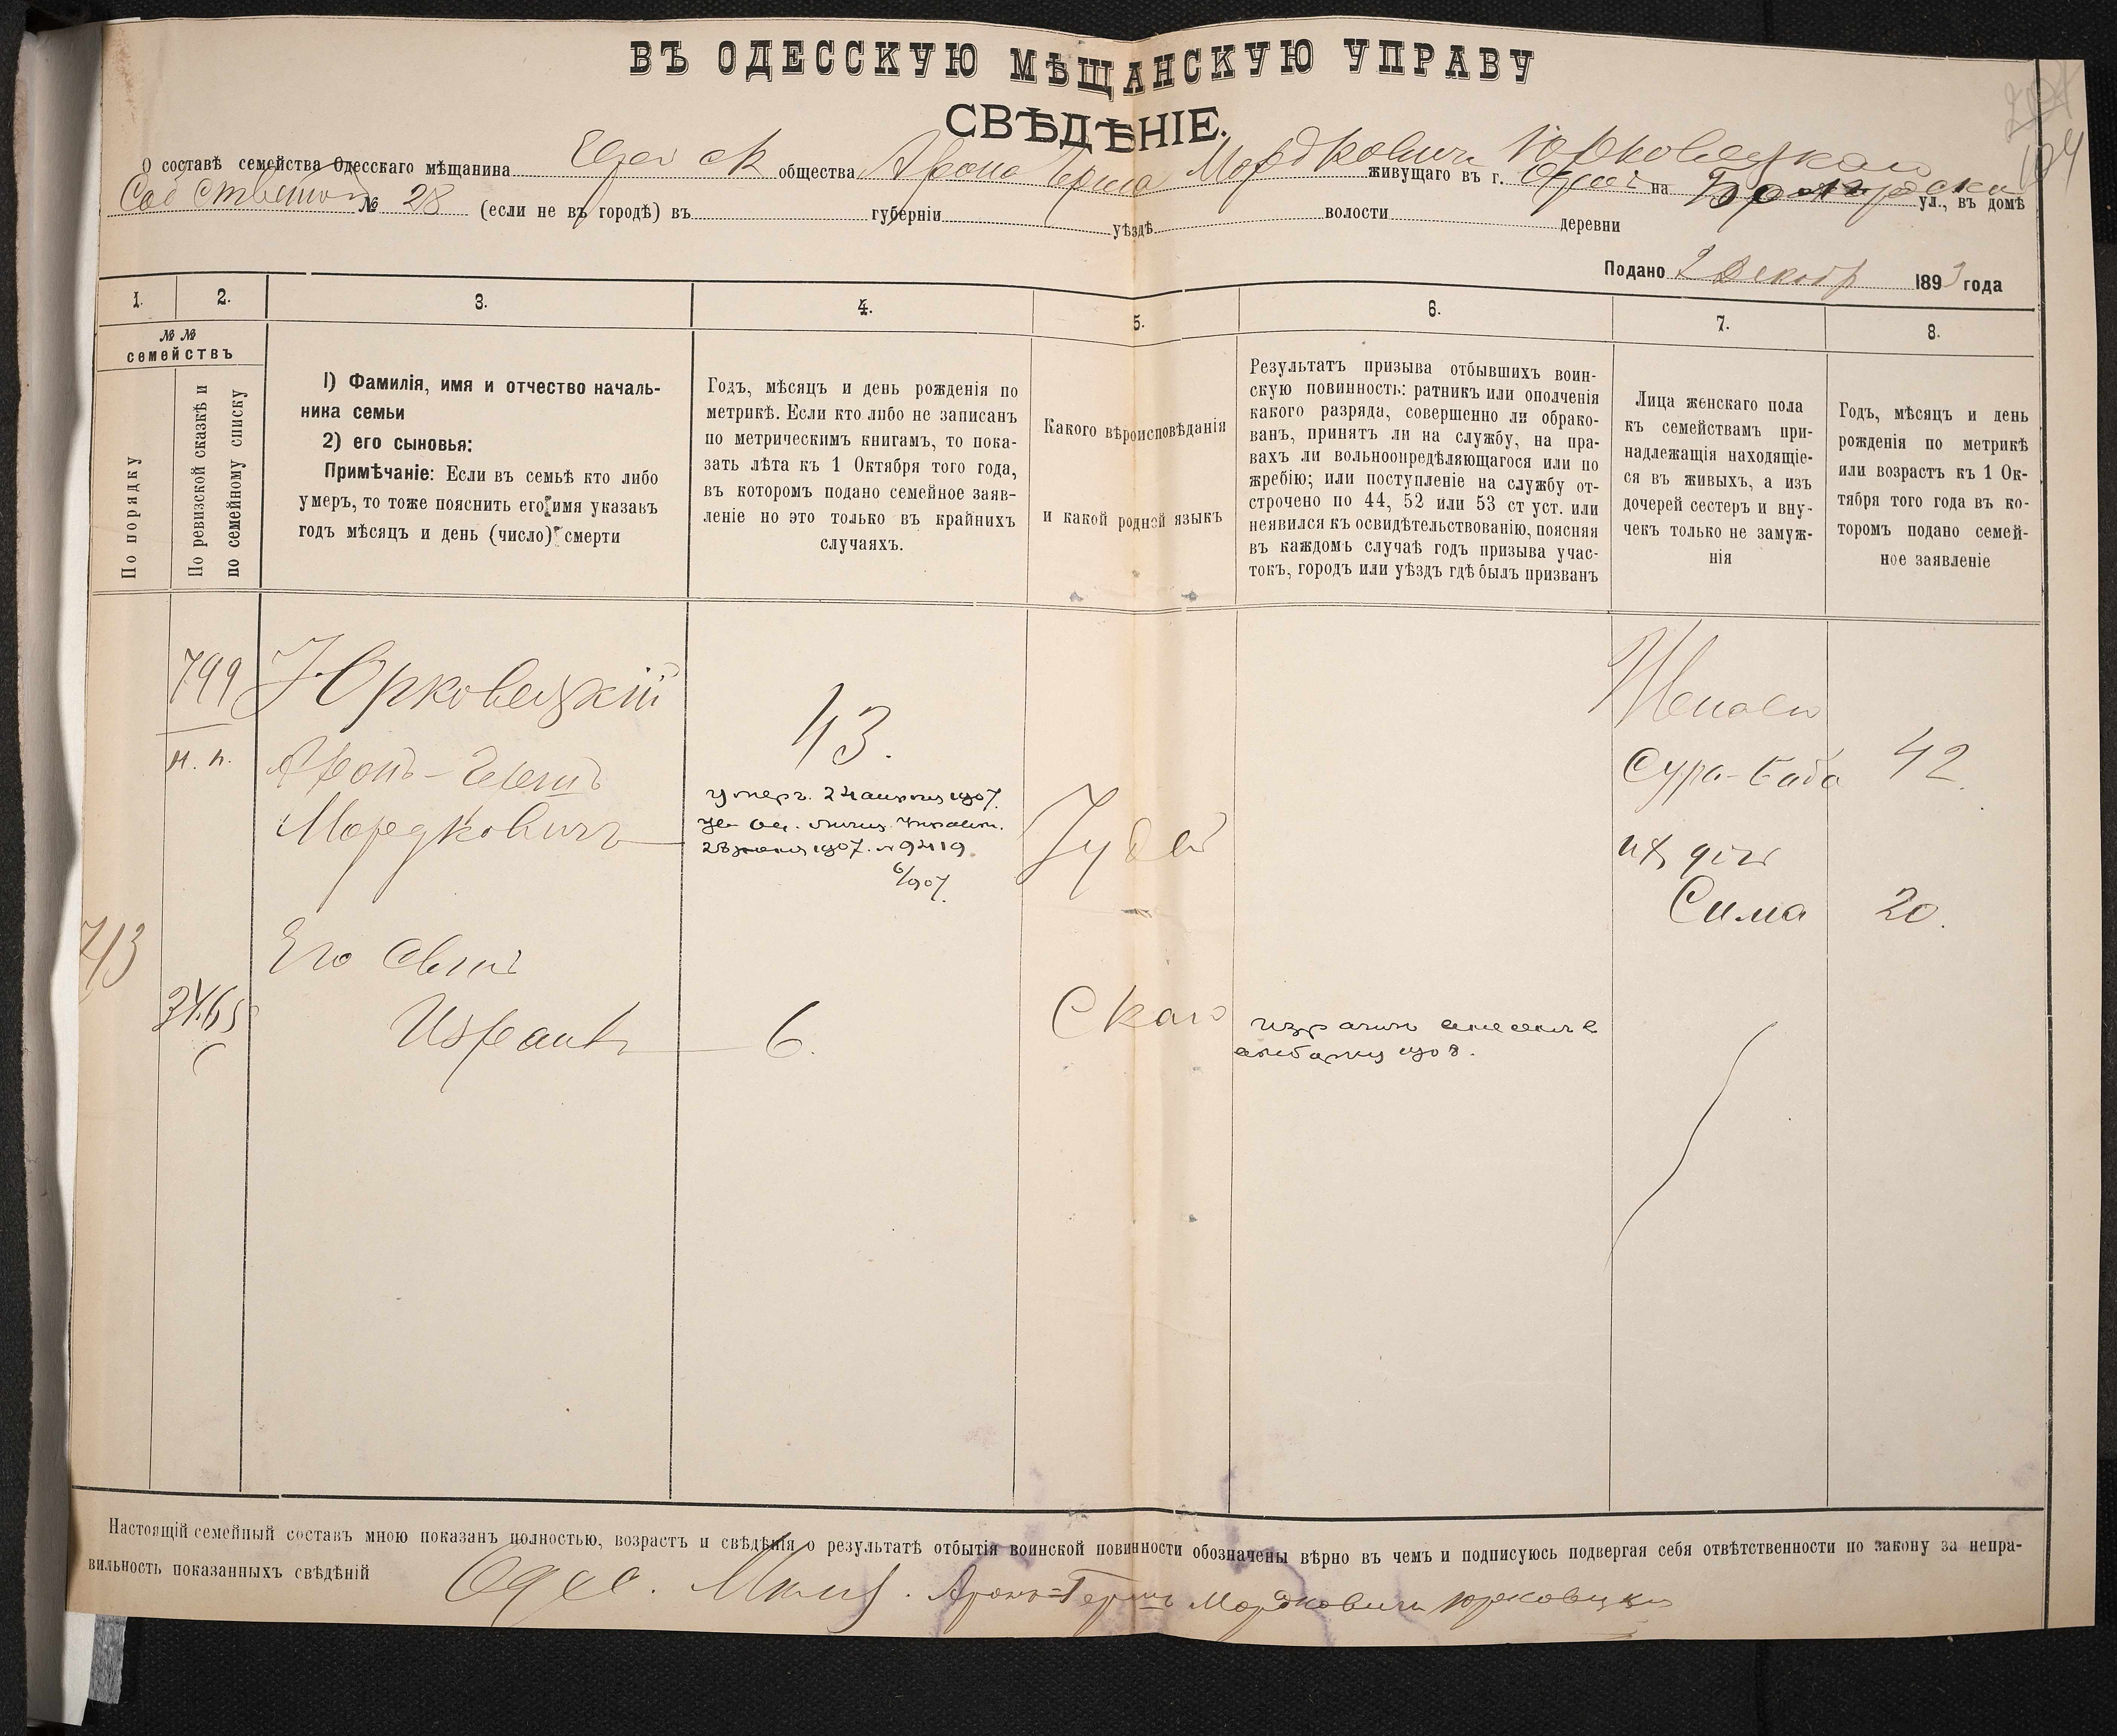 ВЪ ОДЕССКУЮ МѢЩАНСКУЮ УПРАВУ
СВѢДѢНІЕ.
О составѣ семейства Одесскаго мѣщанина общества Арона Герша Мордковича Юрковецкаго живущаго въ г. на ул., въ домѣ
№ 28 (если не въ городѣ) въ губерніи уѣздѣ волости деревни
Подано 2 Декабр 1893 года
1. 2. 3. 4. 5. 6. 7. 8.
№ №
семействъ
По порядку
По ревизской сказкѣ и
по семейному списку
1) Фамилія, имя и отчество началь-
ника семьи
2) его сыновья:
Примѣчаніе: Если въ семьѣ кто либо
умеръ, то тоже пояснить его имя указавъ
годъ мѣсяцъ и день (число) смерти
Годъ, мѣсяцъ и день рожденія по
метрикѣ. Если кто либо не записанъ
по метрическимъ книгамъ, то пока-
зать лѣта къ 1 Октября того года,
въ которомъ подано семейное заяв-
леніе но это только въ крайнихъ
случаяхъ.
Какого вѣроисповѣданія
и какой родной языкъ
Результатъ призыва отбывшихъ воин-
скую повинность: ратникъ или ополченія
какого разряда, совершенно ли обрако-
ванъ, принятъ ли на службу, на пра-
вахъ ли вольноопредѣляющагося или по
жребію; или поступленіе на службу от-
строчено по 44, 52 или 53 ст уст. или
неявился къ освидѣтельствованію, поясняя
въ каждомъ случаѣ годъ призыва учас-
токъ, городъ или уѣздъ гдѣ былъ призванъ
Лица женскаго пола
къ семействамъ при-
надлежащія находящіе-
ся въ живыхъ, а изъ
дочерей сестеръ и вну-
чекъ только не замуж-
нія
Годъ, мѣсяцъ и день
рожденія по метрикѣ
или возрастъ къ 1 Ок-
тября того года въ ко-
торомъ подано семей-
ное заявленіе
799
Юрковецкій
Аронъ-Гершъ
Мордковичъ
43.
1907.
1907. № 9419
Іудей
Скаго
Жена его
Сура-Баба 42.
ихъ дочь
Сима 20.
713
Его сынъ
Израиль 6.
1908.
Настоящій семейный составъ мною показанъ полностью, возрастъ и свѣдѣнія о результатѣ отбытія воинской повинности обозначены вѣрно въ чемъ и подписуюсь подвергая себя отвѣтственности по закону за непра-
вильность показанныхъ свѣдѣній
Аронъ=Гершъ Мордковичъ Юрковецкій